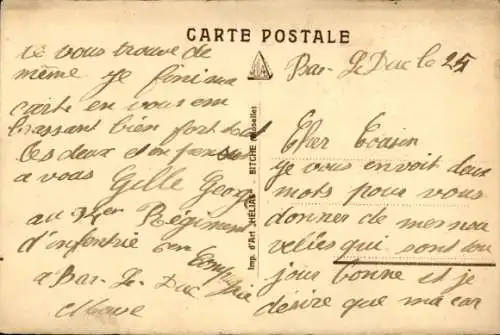 CARTE POSTALE
Bar-Le Duc le 25
Cher Cousin
Je vous envoit deux
mots pour vous
donner de mes nou
velles qui sont tou
jour bonne et je
désire que ma car
te vous trouve de
même je fini ma
carte en vous em
brassant bien fort tout
les deux et en pensent
a vous Gille George
au Régiment
d'infentrie em
a Bar-Le Duc
Meuse
Imp. d'Art "HÉLIAS" - BITCHE (Moselle)